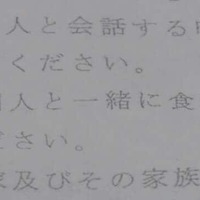 人と会話する
ください。
人と一緒に食
ださい。
及びその家族